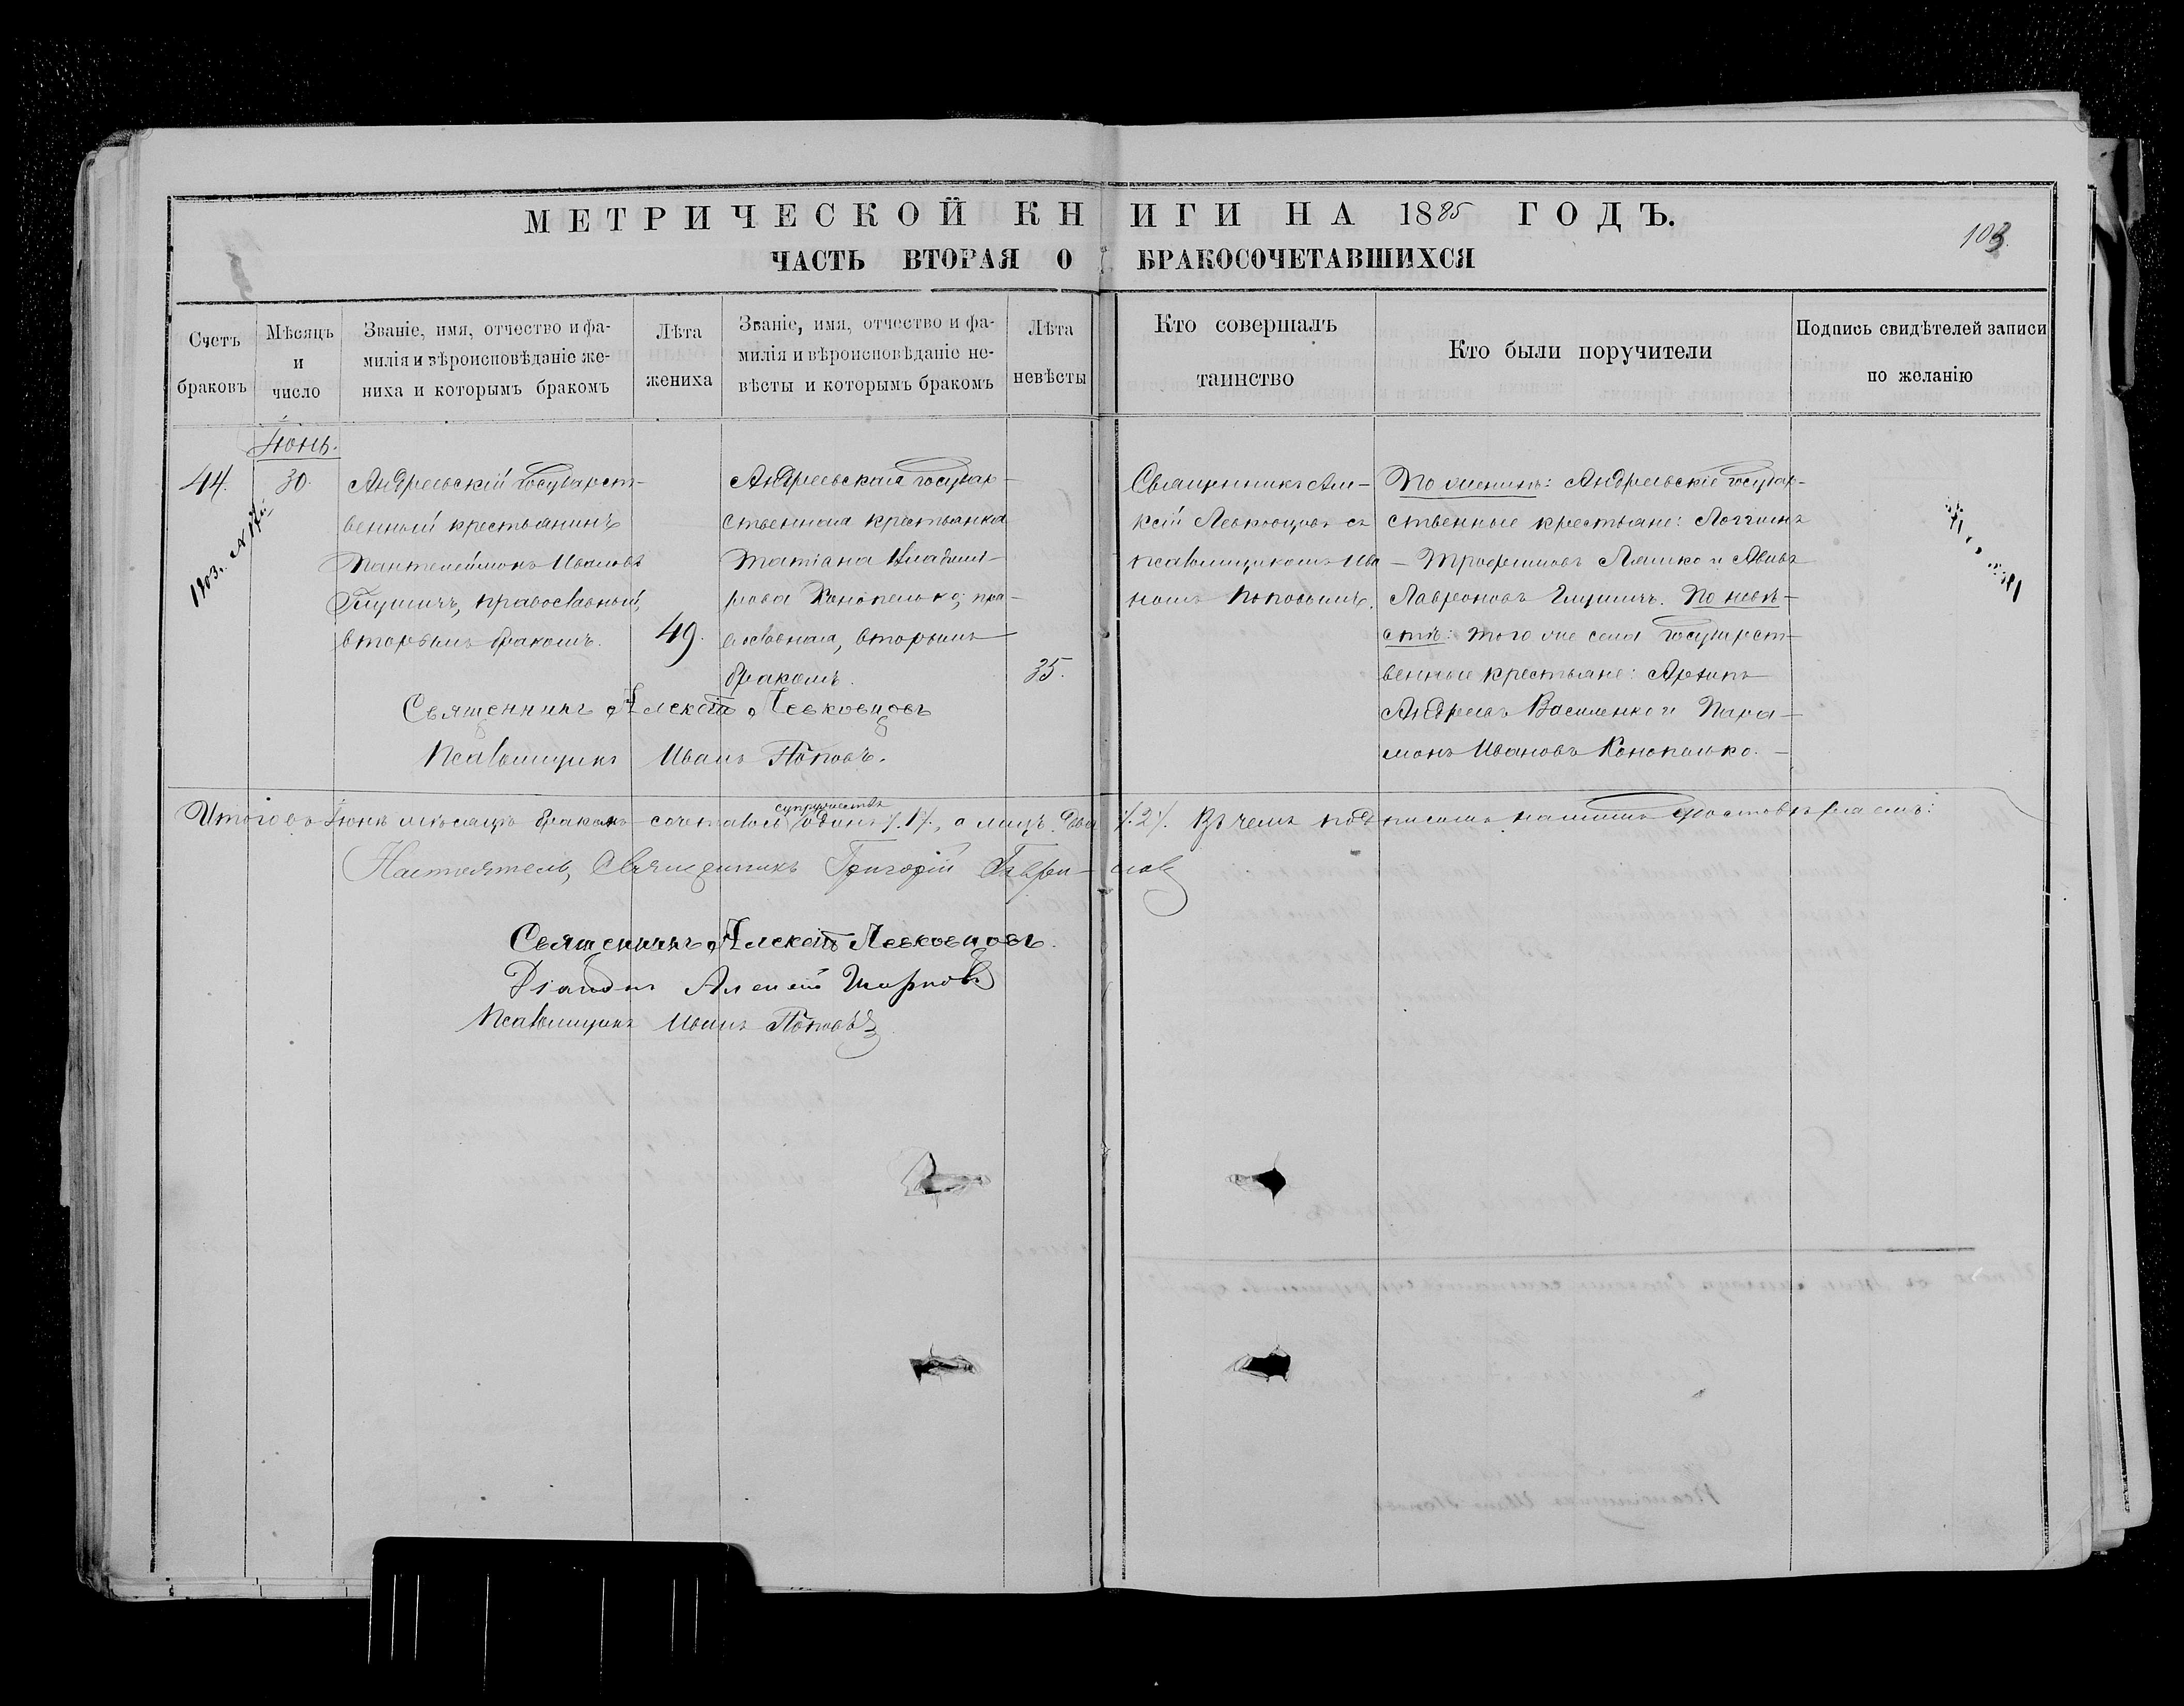 МЕТРИЧЕСКОЙ КНИГИ НА 1885 ГОДЪ.
103.
ЧАСТЬ ВТОРАЯ О БРАКОСОЧЕТАВШИХСЯ
Счетъ
браковъ
Мѣсяцъ
и
число
Званіе, имя, отчество и фа-
милія и вѣроисповѣданіе же-
ниха и которымъ бракомъ
Лѣта
жениха
Званіе, имя, отчество и фа-
милія и вѣроисповѣданіе не-
вѣсты и которымъ бракомъ
Лѣта
невѣсты
Кто совершалъ
таинство
Кто были поручители
Подпись свидѣтелей записи
по желанію
44.
Іюнь.
30.
Андреевскій государст-
венный крестьянинъ
Пантелеймонъ Ивановъ
Глушичъ, православный,
вторымъ бракомъ.
49.
Андреевская государ-
ственная крестьянка
Татіана Владимі-
рова Конопелько, пра-
вославная, вторымъ
бракомъ.
35.
Священникъ Але-
ксій Левкоевцовъ съ
псаломщикомъ Ива
номъ Поповымъ.
По женихѣ: Андреевскіе государ-
ственные крестьяне: Логгинъ
Трофимовъ Ляшко и
Глушичъ. По невѣ-
стѣ: того же села государст-
венные крестьяне: Архипъ
Андреевъ Василенко и Пара-
монъ Ивановъ Конопелько.
Священникъ Алексій Левкоевцовъ
Псаломщикъ Иванъ Поповъ.
Итого въ Іюнѣ мѣсяцѣ бракомъ сочеталось супружествъ одинъ /.1/., а лицъ два /.2/. Въ чемъ подписомъ нашимъ удостовѣряемъ:
Настоятель, Священникъ Григорій
Священникъ Алексій Левкоевцовъ.
Діаконъ Алексій
Псаломщикъ Иванъ Поповъ